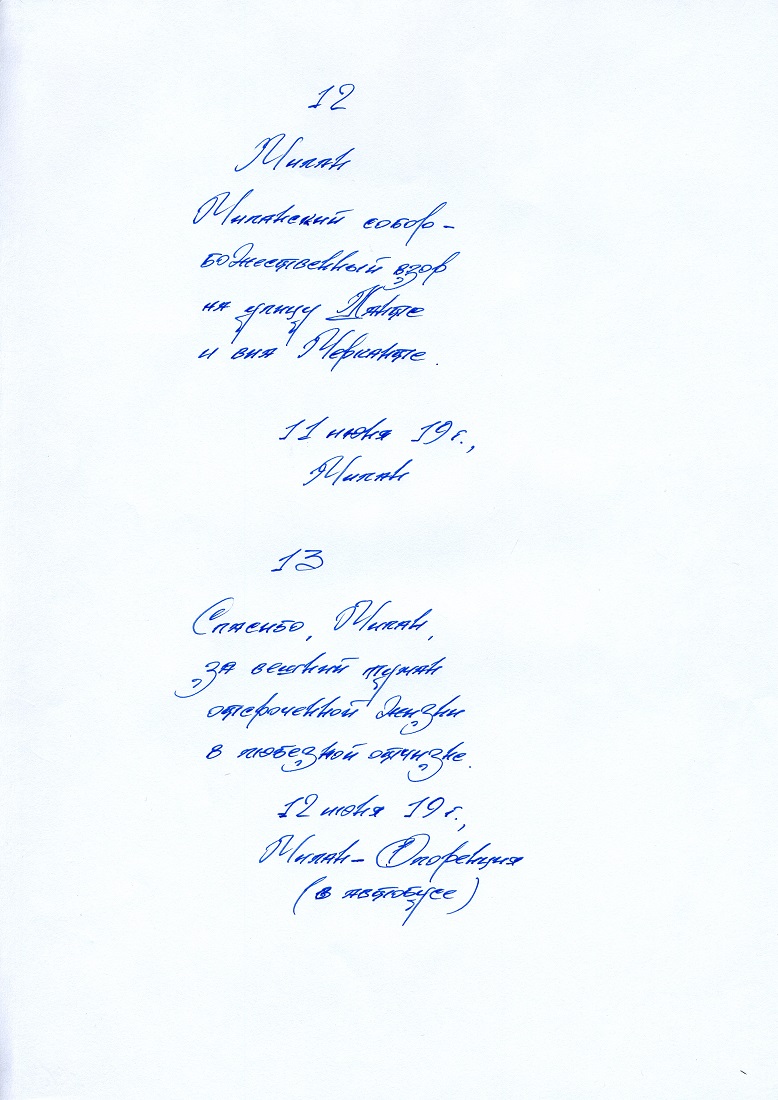 12
Милан
Миланский собор –
божественный взор
на улицу Данте
и виа Мерканте.
11 июня 19 г.,
Милан
13
Спасибо, Милан,
за вешний туман
отсроченной жизни
в любезной отчизне.
12 июня 19 г.,
Милан – Флоренция
(в автобусе)